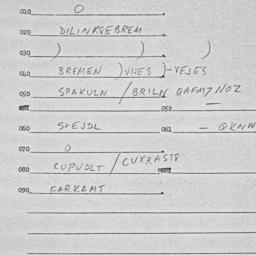 010 O
020 DILINKGEBREM
030 ) ) )
040 BREMEN )VIJES )-VEJES
050 SPAKULN /BRILN QAFM7NOZ
052 —
060 SLEJDL 061 — QKNW
070 O
080 CUPUDLT / CUXRASTS
090 FARKAMT